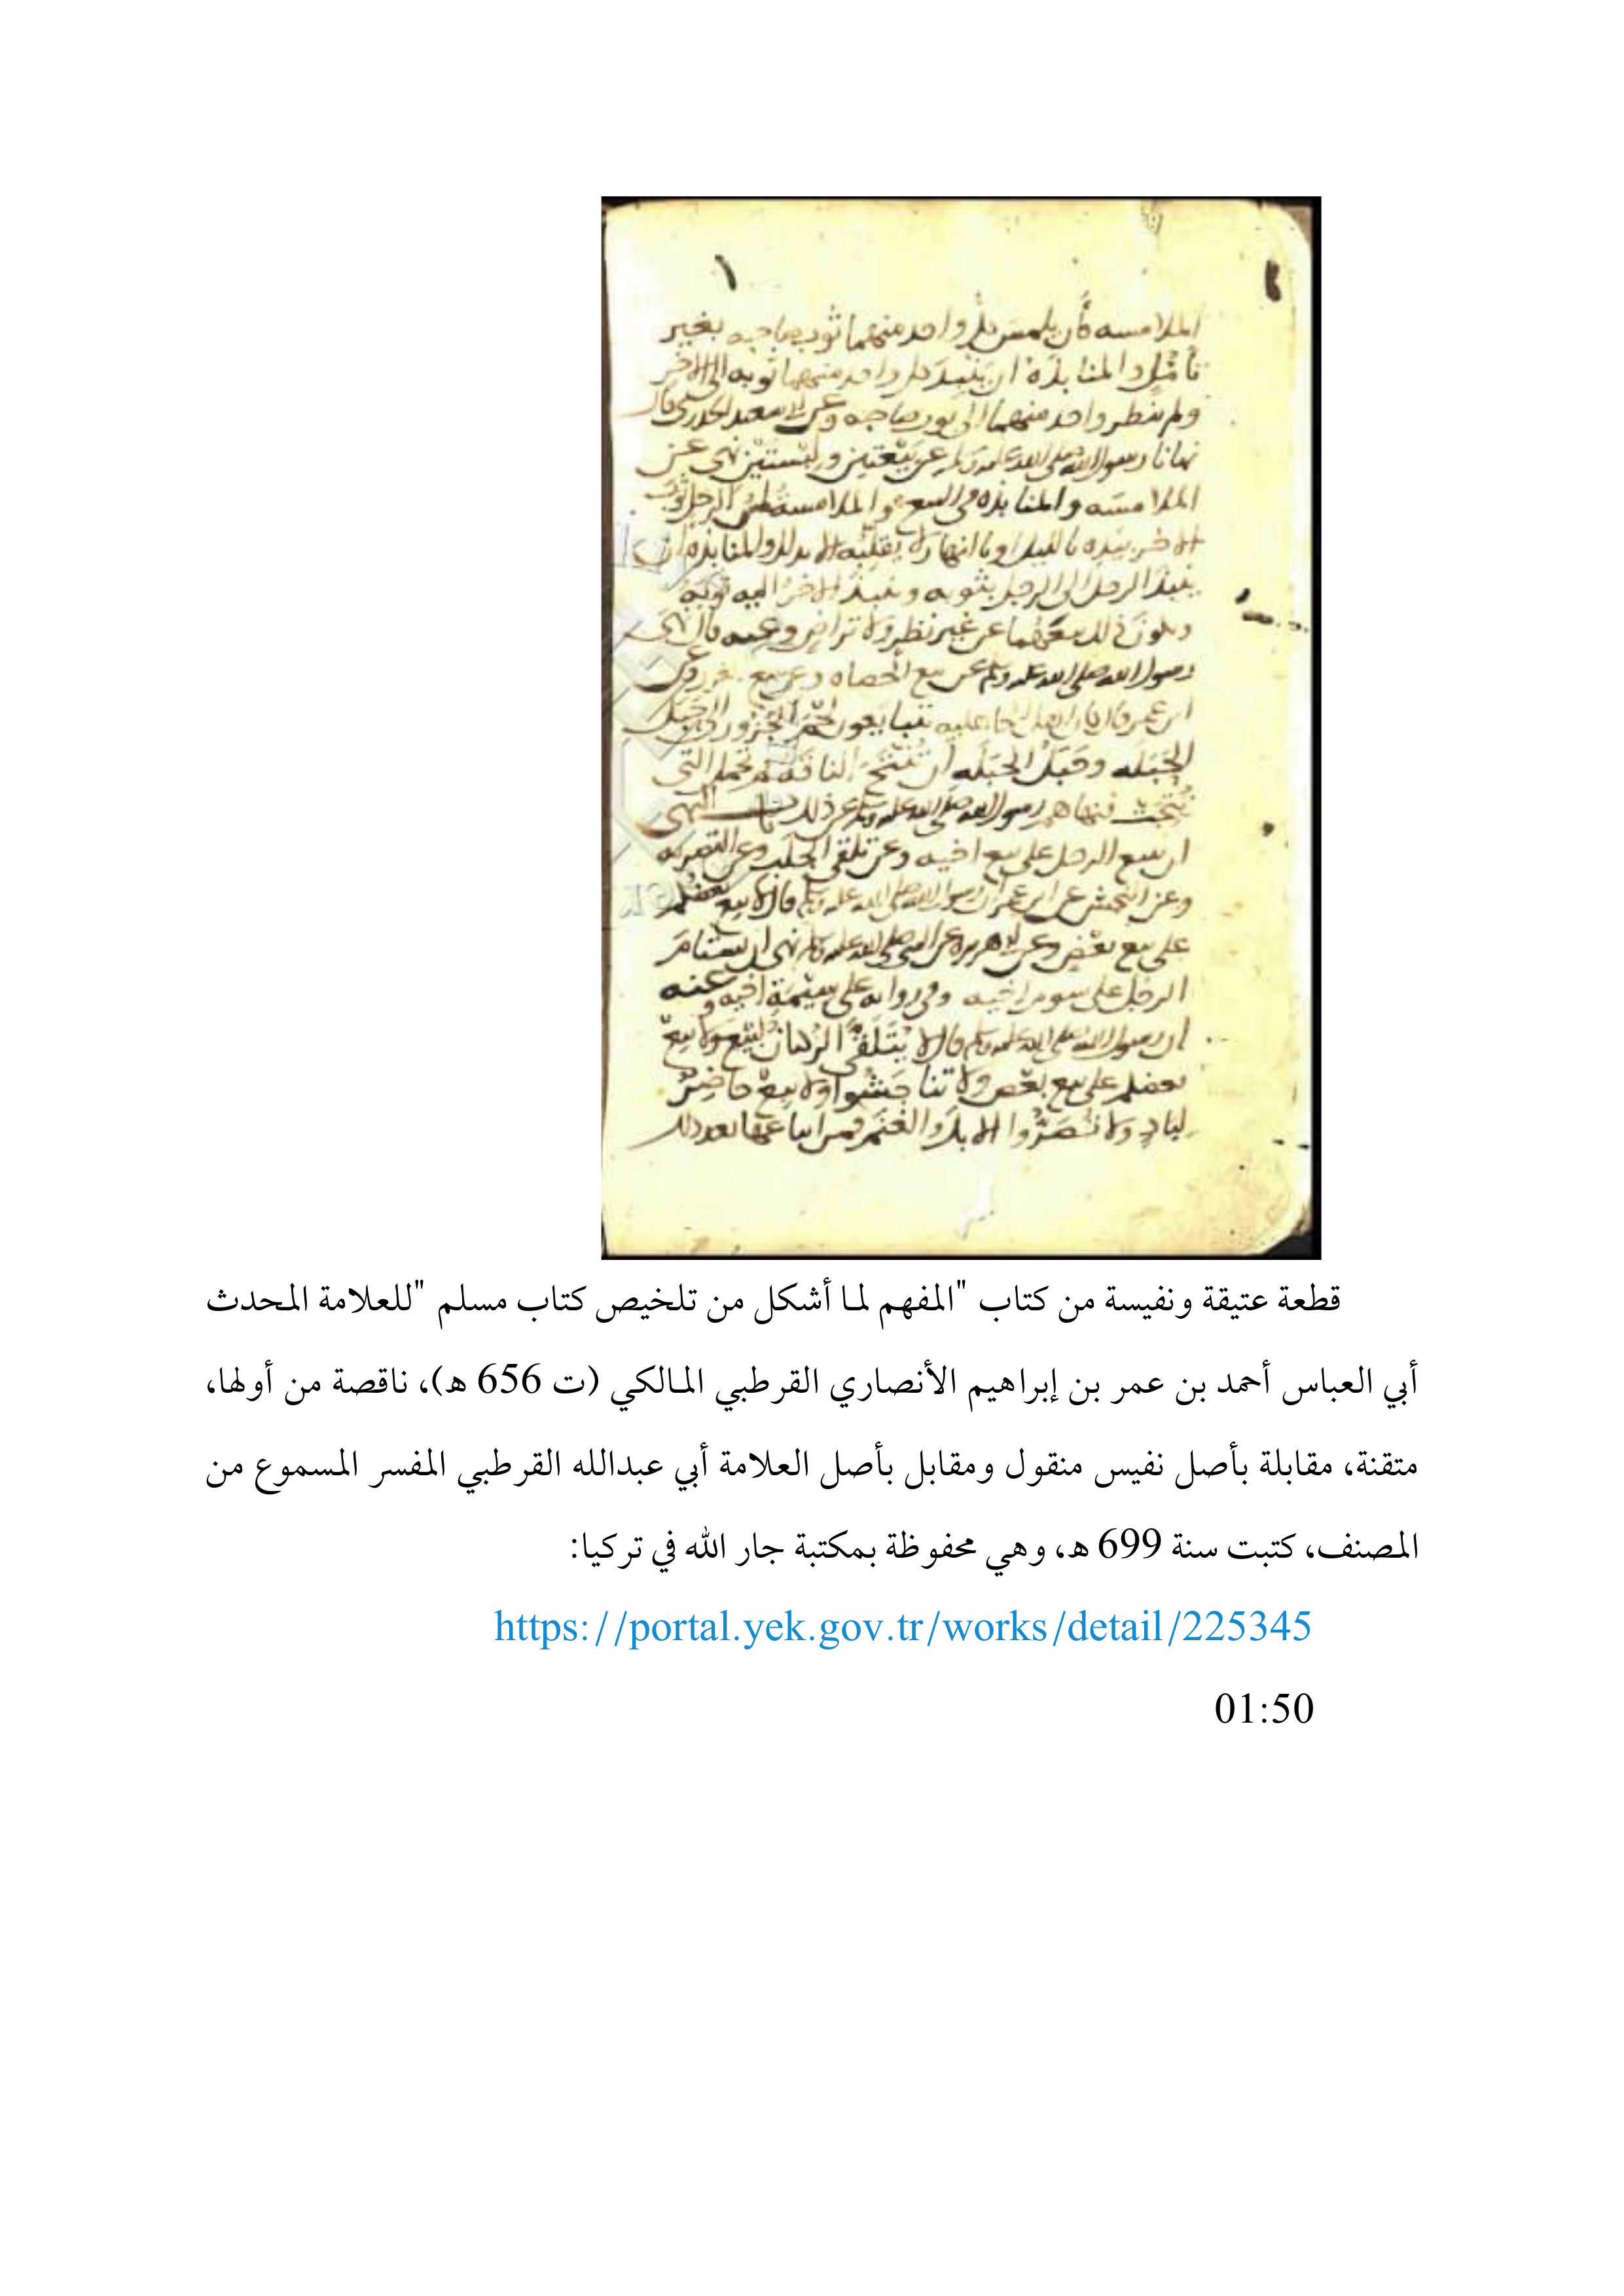 ١
الملامسه فأن يلمس كل واحد منهما ثوب صاحبه بغير
تأمل والمنابذه ان ينبذ كل واحد منهما ثوبه الى الاخر
ولم ينظر واحد منهما الى ثوب صاحبه وعن ابى سعيد الخدرى قال
نهانا رسول الله صلى الله عليه وسلم عن بيعتين ولبستين نهى عن
الملامسه والمنابذه فى البيع والملامسه لمس الرجل ثوب
الاخر بيده بالليل او بالنهار ولا يقلبه الا بذلك والمنابذه ان
ينبذ الرجل الى الرجل بثوبه وينبذ الاخر اليه ثوبه
ويكون ذلك بيعهما عن غير نظر ولا تراض وعنه قال نهى
رسول الله صلى الله عليه وسلم عن بيع الحصاه وعن بيع الغرر وعن
ابن عمر قال كان اهل الجاهليه يتبايعون لحم الجزور الى حبل
الحبله وحبل الحبله ان تنتج الناقه ثم تحمل التى
نتجت فنهاهم رسول الله صلى الله عليه وسلم عن ذلك باب النهى
ان يبيع الرجل على بيع اخيه وعن تلقى الجلب وعن التصريه
وعن النجش عن ابن عمر ان رسول الله صلى الله عليه وسلم قال لا يبع بعضكم
على بيع بعض وعن ابى هريره عن النبى صلى الله عليه وسلم نهى ان يستام
الرجل على سوم اخيه وفى روايه على سيمة اخيه وعنه
ان رسول الله صلى الله عليه وسلم قال لا يتلقى الركبان لبيع ولا يبع
بعضكم على بيع بعض ولا تناجشوا ولا يبع حاضر
لباد ولا تصروا الابل والغنم فمن ابتاعها بعد ذلك
قطعة عتيقة ونفيسة من كتاب "المفهم لما أشكل من تلخيص كتاب مسلم "للعلامة المحدث
أبي العباس أحمد بن عمر بن إبراهيم الأنصاري القرطبي المالكي (ت 656 هـ)، ناقصة من أولها،
متقنة، مقابلة بأصل نفيس منقول ومقابل بأصل العلامة أبي عبدالله القرطبي المفسر المسموع من
المصنف، كتبت سنة 699 هـ، وهي محفوظة بمكتبة جار الله في تركيا:
https://portal.yek.gov.tr/works/detail/225345
01:50